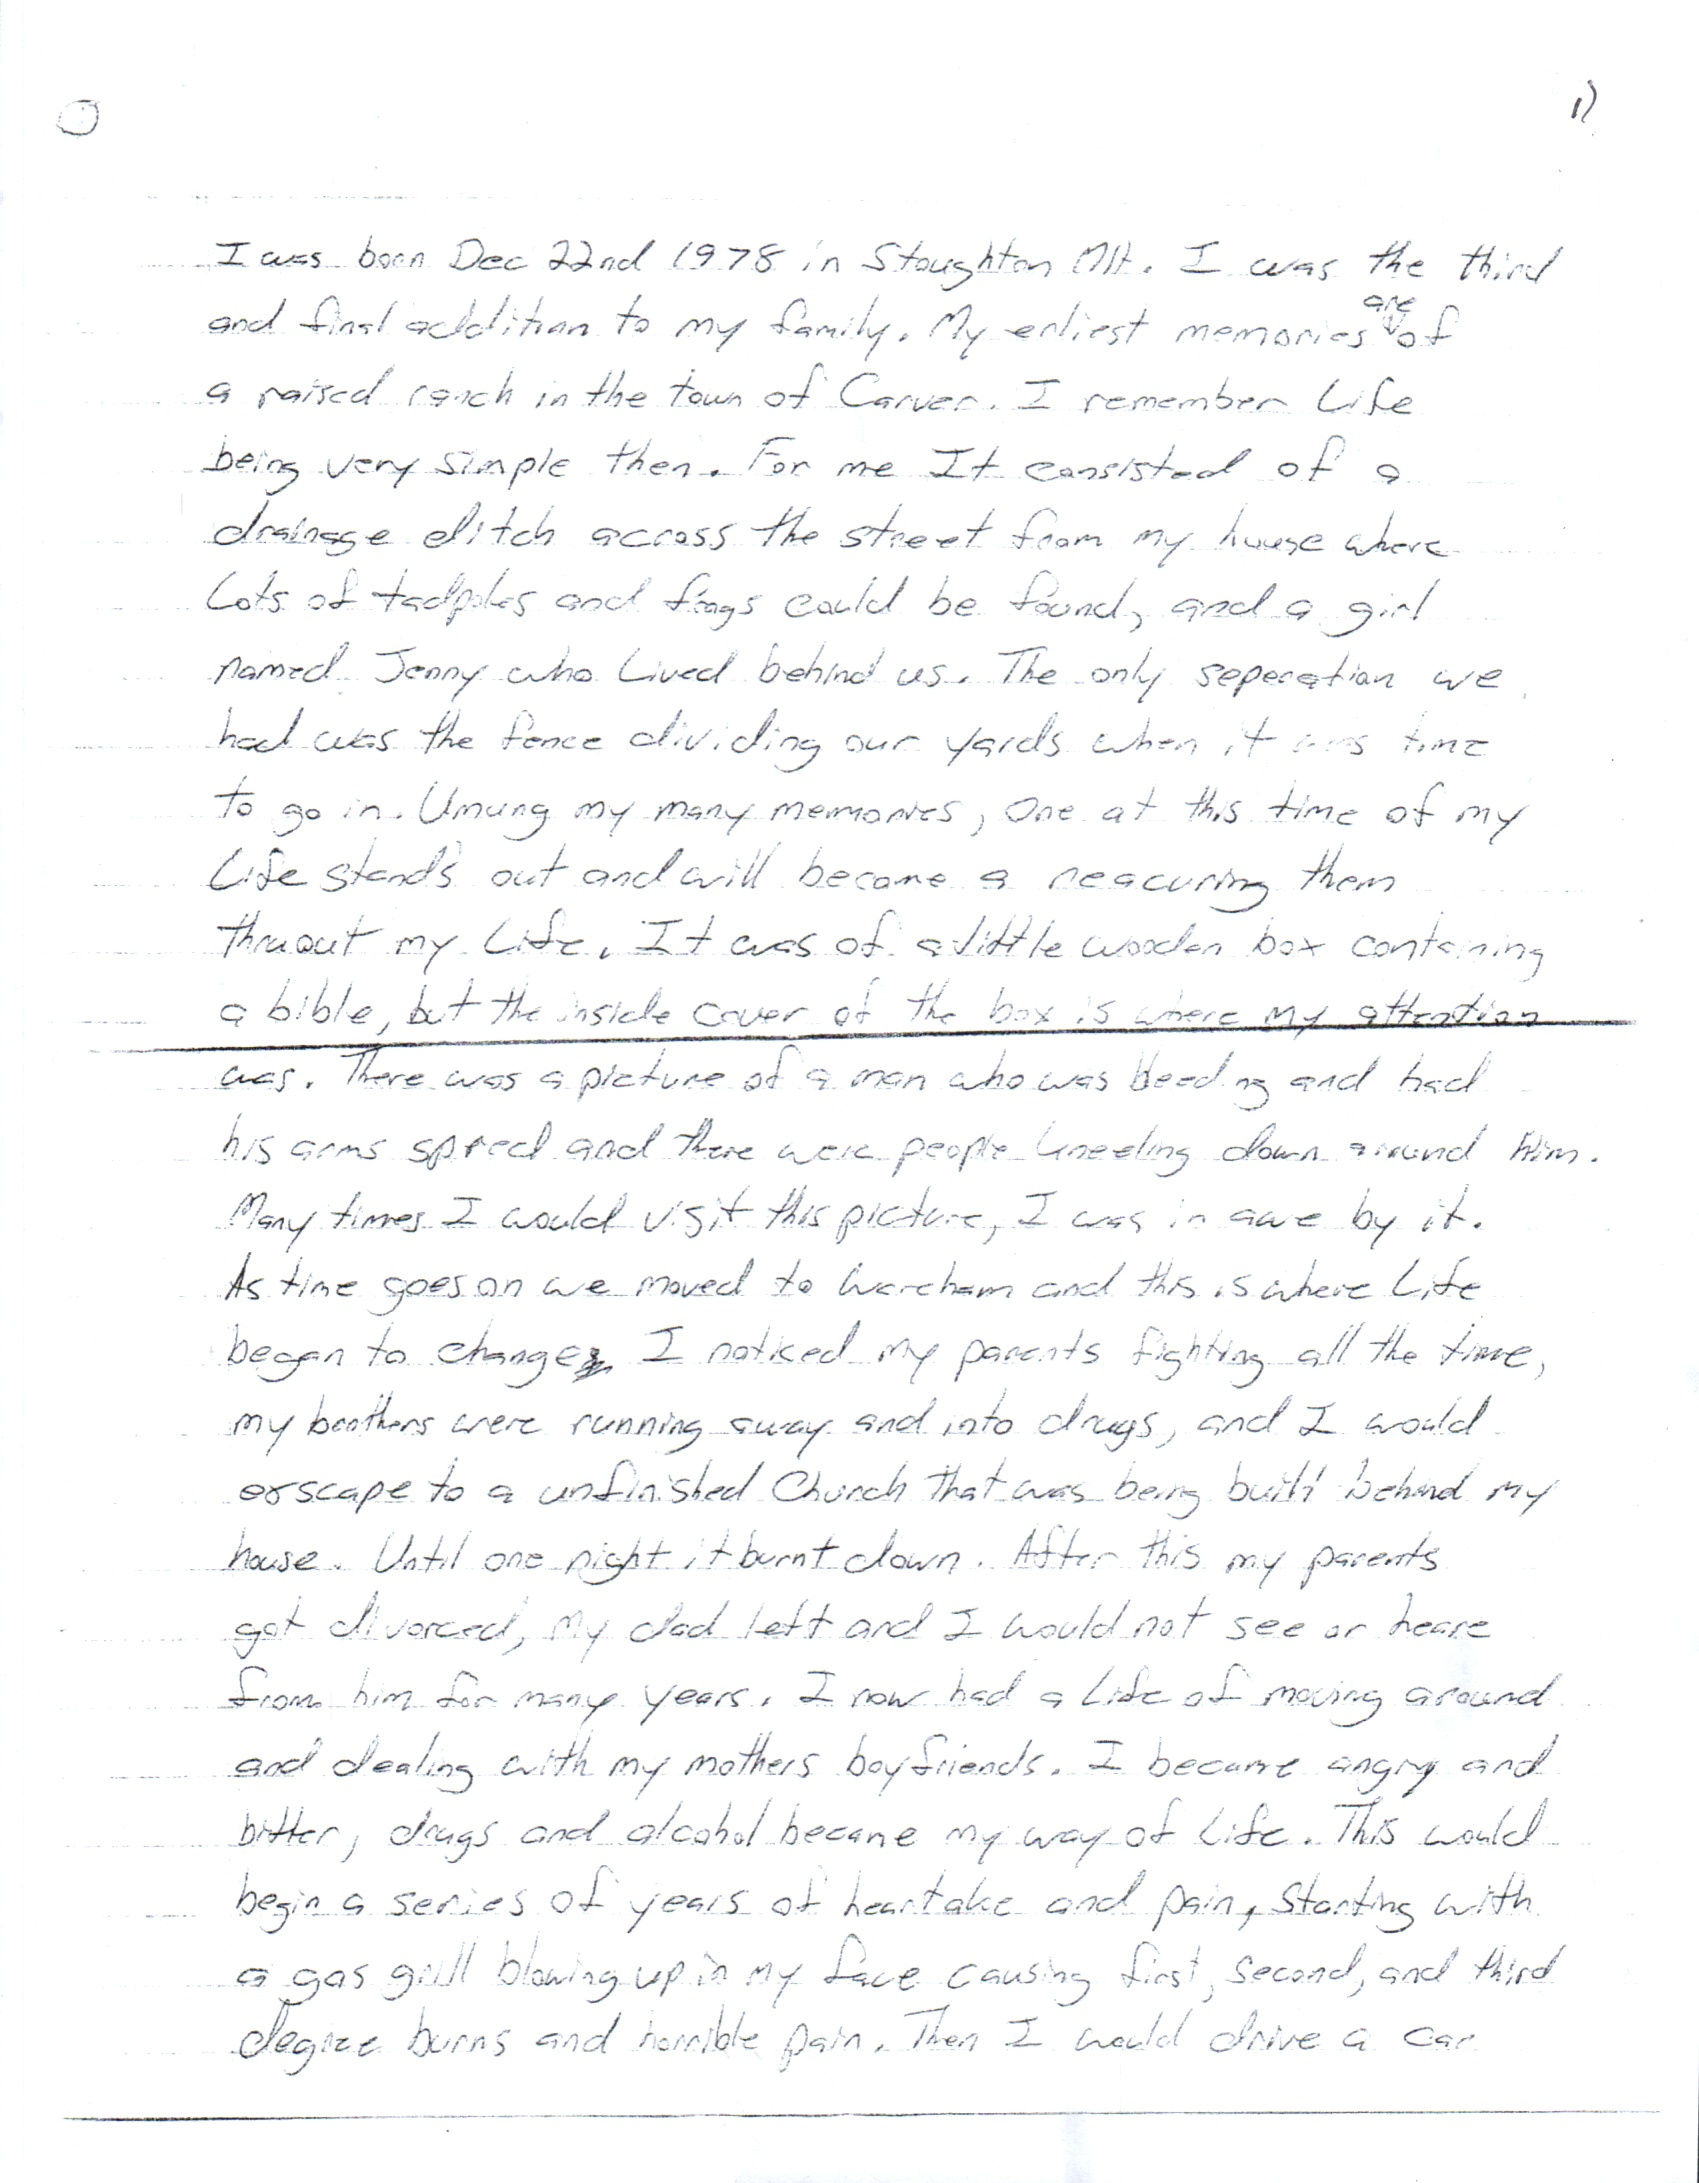 1)
I was born Dec 22nd 1978 in Stoughton MA. I was the third
are
and final addition to my family. My erliest memories of
a raised ranch in the town of Carver. I remember Life
being very simple then. For me It consisted of a
drainage ditch across the street from my house where
Lots of tadpoles and frogs could be found, and a girl
named Jenny who Lived behind us. The only seperation we
had was the fence dividing our yards when it was time
to go in. Umung my many memories, One at this time of my
Life stands out and will become a reacuring them
thruout my Life. It was of a little wooden box containing
a bible, but the inside cover of the box is where my attention
was. There was a picture of a man who was bleeding and had
his arms spred and there were people kneeling down around him.
Many times I would visit this picture, I was in awe by it.
As time goes on we moved to Wareham and this is where Life
began to change. I noticed my parents fighting all the time,
my brothers were running away and into drugs, and I would
escape to a unfinished Church that was being built behind my
house. Until one night it burnt down. After this my parents
got divorced, My dad left and I would not see or heare
from him for many years. I now had a Life of moving around
and dealing with my mothers boyfriends. I became angry and
bitter, drugs and alcohol became my way of Life. This would
begin a series of years of heartake and pain, Starting with
a gas grill blowing up in my face causing first, second, and third
degree burns and horrible pain. Then I would drive a car